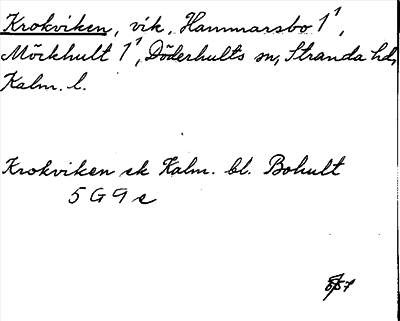 Krokviken, vik, Hammarsbo 1¹,
Mörkhult 1¹, Döderhults sn, Stranda hd,
Kalm. l.
Krokviken ek Kalm. bl. Bohult
5 G 9 e